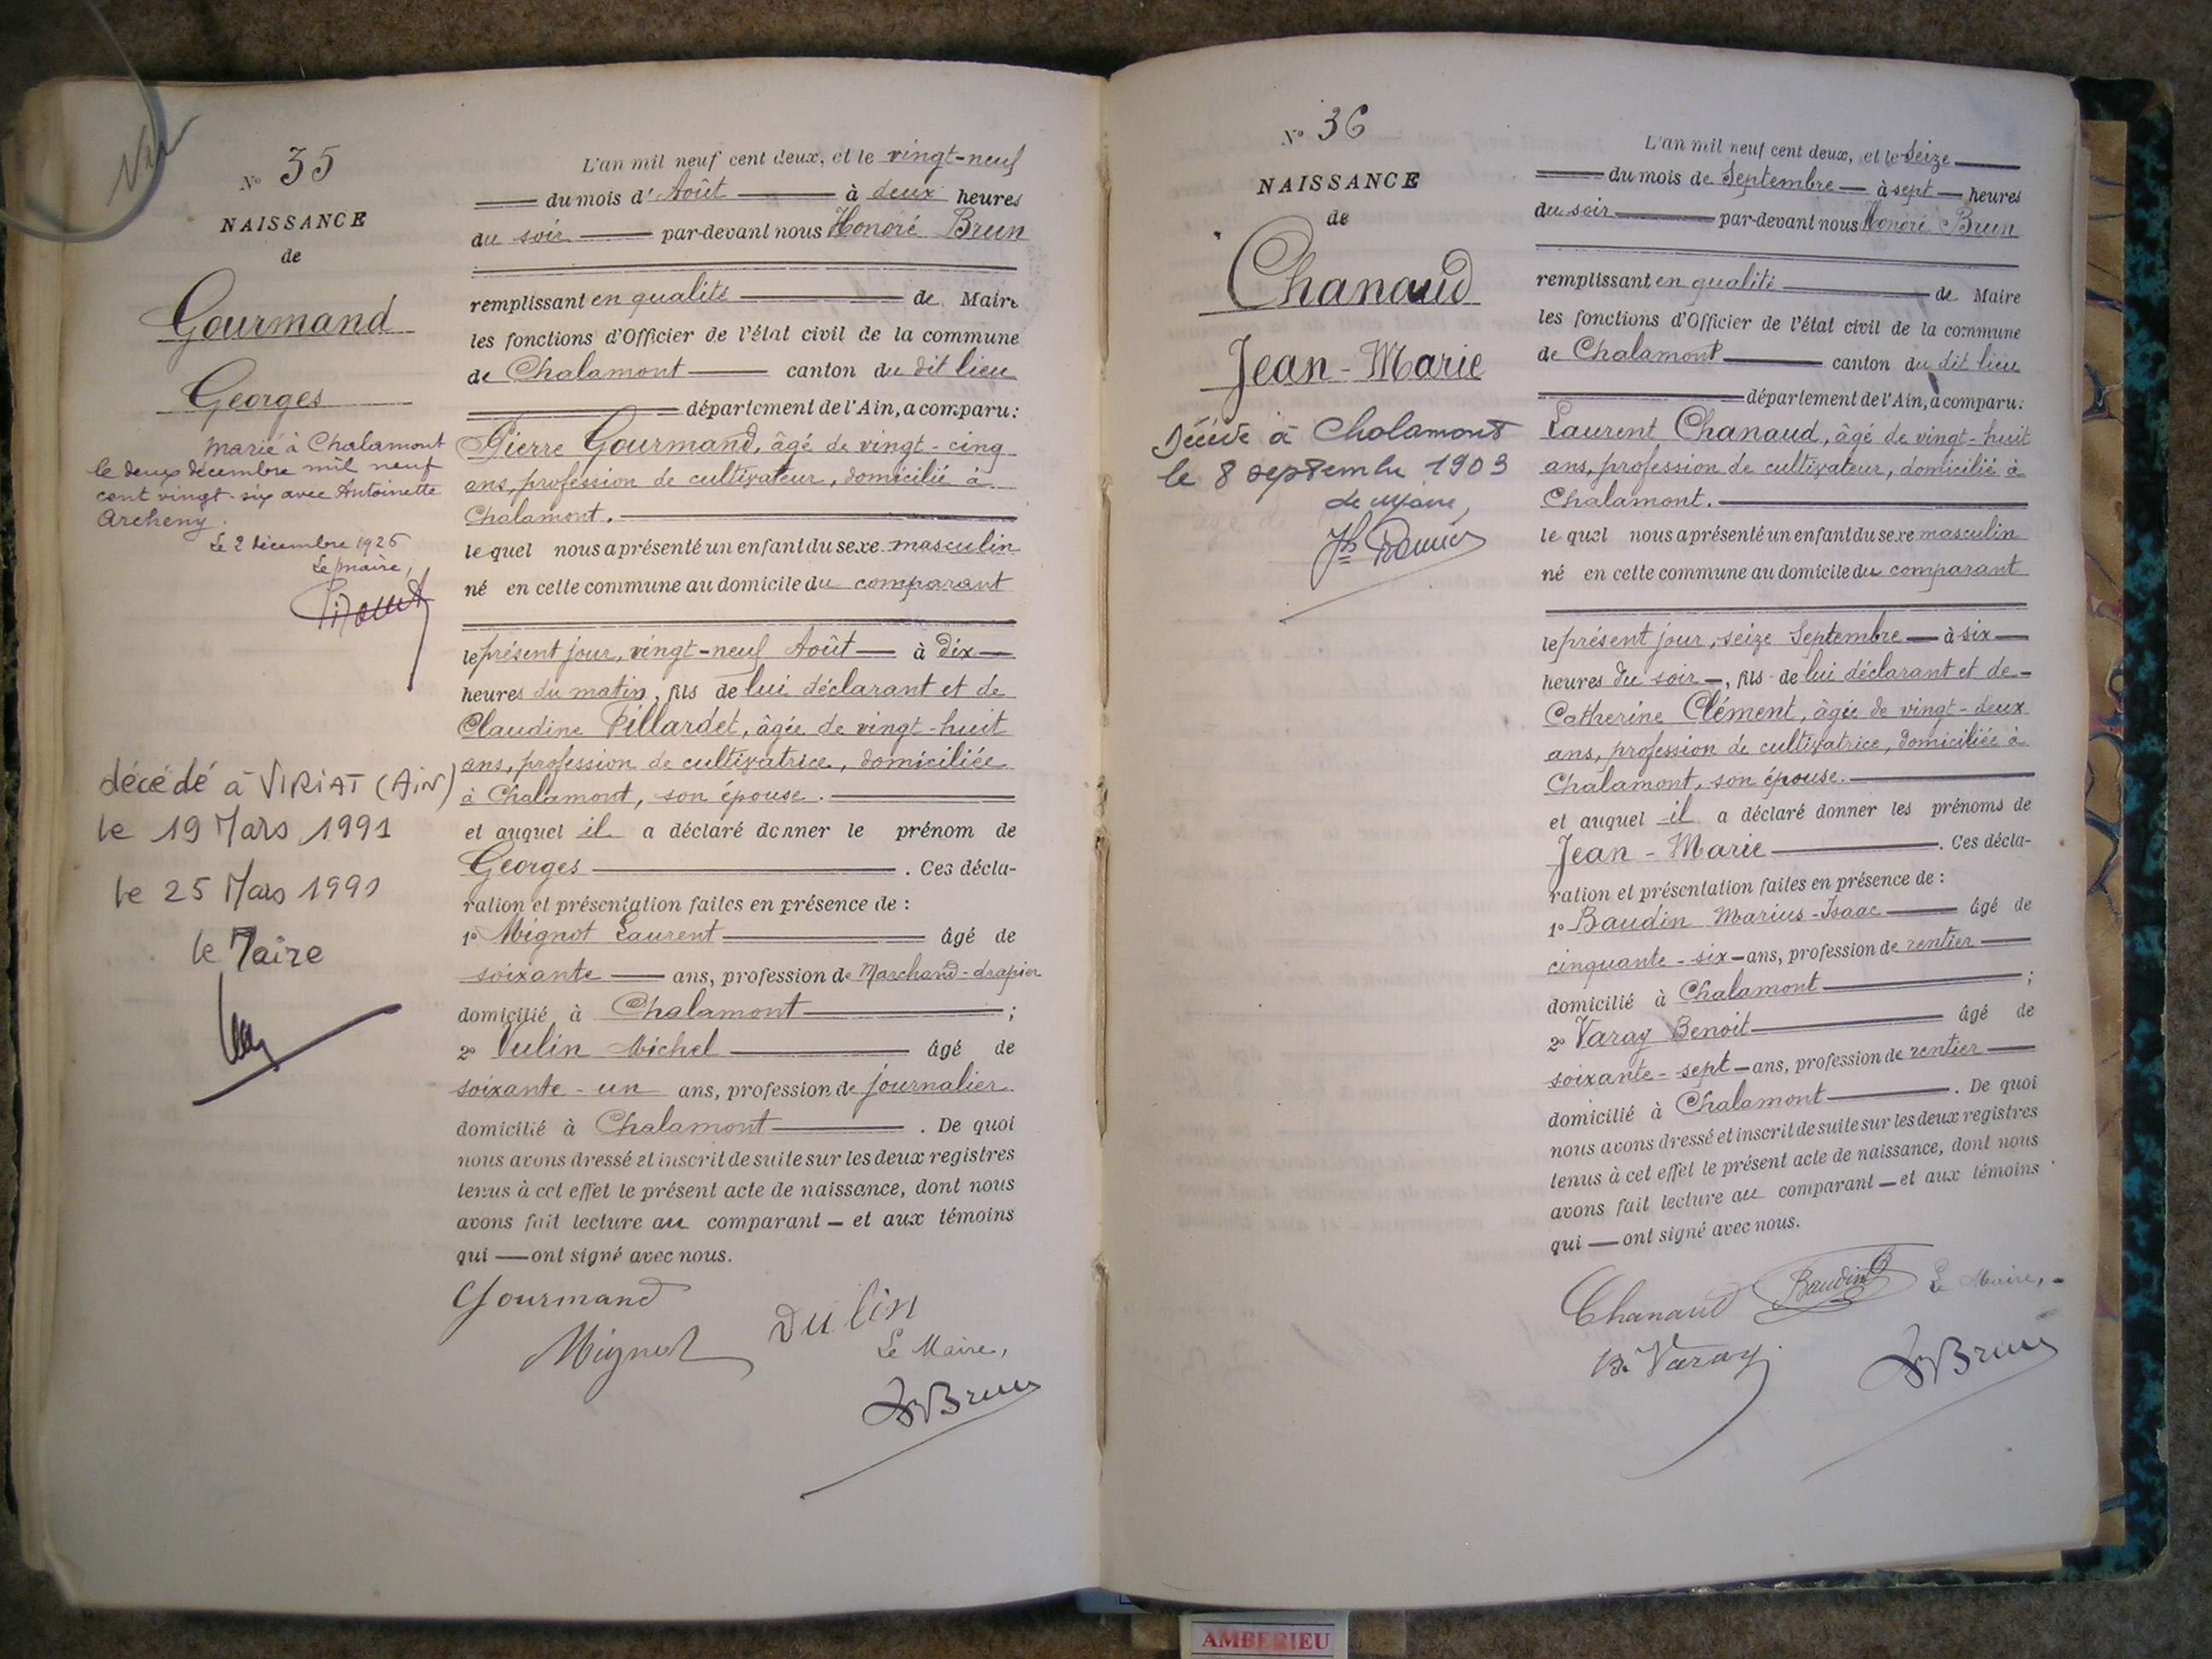 Nº 35
NAISSANCE
de
Gourmand
Georges
Marié à Chalamont
le deux décembre mil neuf
cent vingt-six avec Antoinette
Archeny.
Le 2 décembre 1926
Le maire,
décédé à VIRIAT (AiN)
le 19 Mars 1991
le 25 Mars 1991
le Maire
L'an mil neuf cent deux, et le vingt-neuf
du mois d'Août à deux heures
du soir par-devant nous Honoré Brun
remplissant en qualité de Maire
les fonctions d'Officier de l'état civil de la commune
de Chalamont canton du dit lieu
département de l'Ain, a comparu:
Pierre Gourmand, âgé de vingt-cinq
ans, profession de cultivateur, domicilié à
Chalamont.
lequel nous a présenté un enfant du sexe masculin
né en cette commune au domicile du comparant
le présent jour, vingt-neuf Août à dix
heures du matin, fils de lui déclarant et de
Claudine Pillardet, âgée de vingt-huit
ans, profession de cultivatrice, domiciliée
à Chalamont, son épouse.
et auquel il a déclaré donner le prénom de
Georges . Ces décla-
ration et présentation faites en présence de :
1º Mignot Laurent âgé de
soixante ans, profession de Marchand-drapier
domicilié à Chalamont ;
2º Dulin Michel âgé de
soixante-un ans, profession de journalier
domicilié à Chalamont . De quoi
nous avons dressé et inscrit de suite sur les deux registres
tenus à cet effet le présent acte de naissance, dont nous
avons fait lecture au comparant — et aux témoins
qui — ont signé avec nous.
Gourmand
Dulin
Mignot
Le Maire,
Brun
Nº 36
NAISSANCE
de
Chanaud
Jean-Marie
Décédé à Chalamont
le 8 septembre 1903
Le Maire,
L'an mil neuf cent deux, et le Seize
du mois de Septembre — à sept — heures
du soir par-devant nous Honoré Brun
remplissant en qualité de Maire
les fonctions d'Officier de l'état civil de la commune
de Chalamont canton du dit lieu
département de l'Ain, a comparu:
Laurent Chanaud, âgé de vingt-huit
ans, profession de cultivateur, domicilié à
Chalamont.
lequel nous a présenté un enfant du sexe masculin
né en cette commune au domicile du comparant
le présent jour, seize Septembre — à six —
heures du soir —, fils de lui déclarant et de
Catherine Clément, âgée de vingt-deux
ans, profession de cultivatrice, domiciliée à
Chalamont, son épouse.
et auquel il a déclaré donner les prénoms de
Jean-Marie . Ces décla-
ration et présentation faites en présence de :
1º Baudin Marius-Isaac âgé de
cinquante-six — ans, profession de rentier
domicilié à Chalamont ;
2º Varay Benoit âgé de
soixante-sept — ans, profession de rentier
domicilié à Chalamont . De quoi
nous avons dressé et inscrit de suite sur les deux registres
tenus à cet effet le présent acte de naissance, dont nous
avons fait lecture au comparant — et aux témoins
qui — ont signé avec nous.
Chanaud Baudin Le Maire,
B. Varay
Brun
AMBERIEU